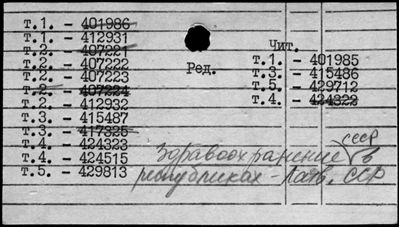 т.1. - 401986
т.1. - 412931
т.2. - 407221
т.2. - 407222
т.2. - 407223
т.2. - 407224
т.2. - 412932
т.3. - 415487
т.3. - 417325
т.4. - 424323
т.4. - 424515
т.5. - 429813
Ред.
Чит.
т.1. - 401985
т.3. - 415486
т.5. - 429712
т.4. - 424322
Здравоохранение СССР в
республиках - Латв. ССР